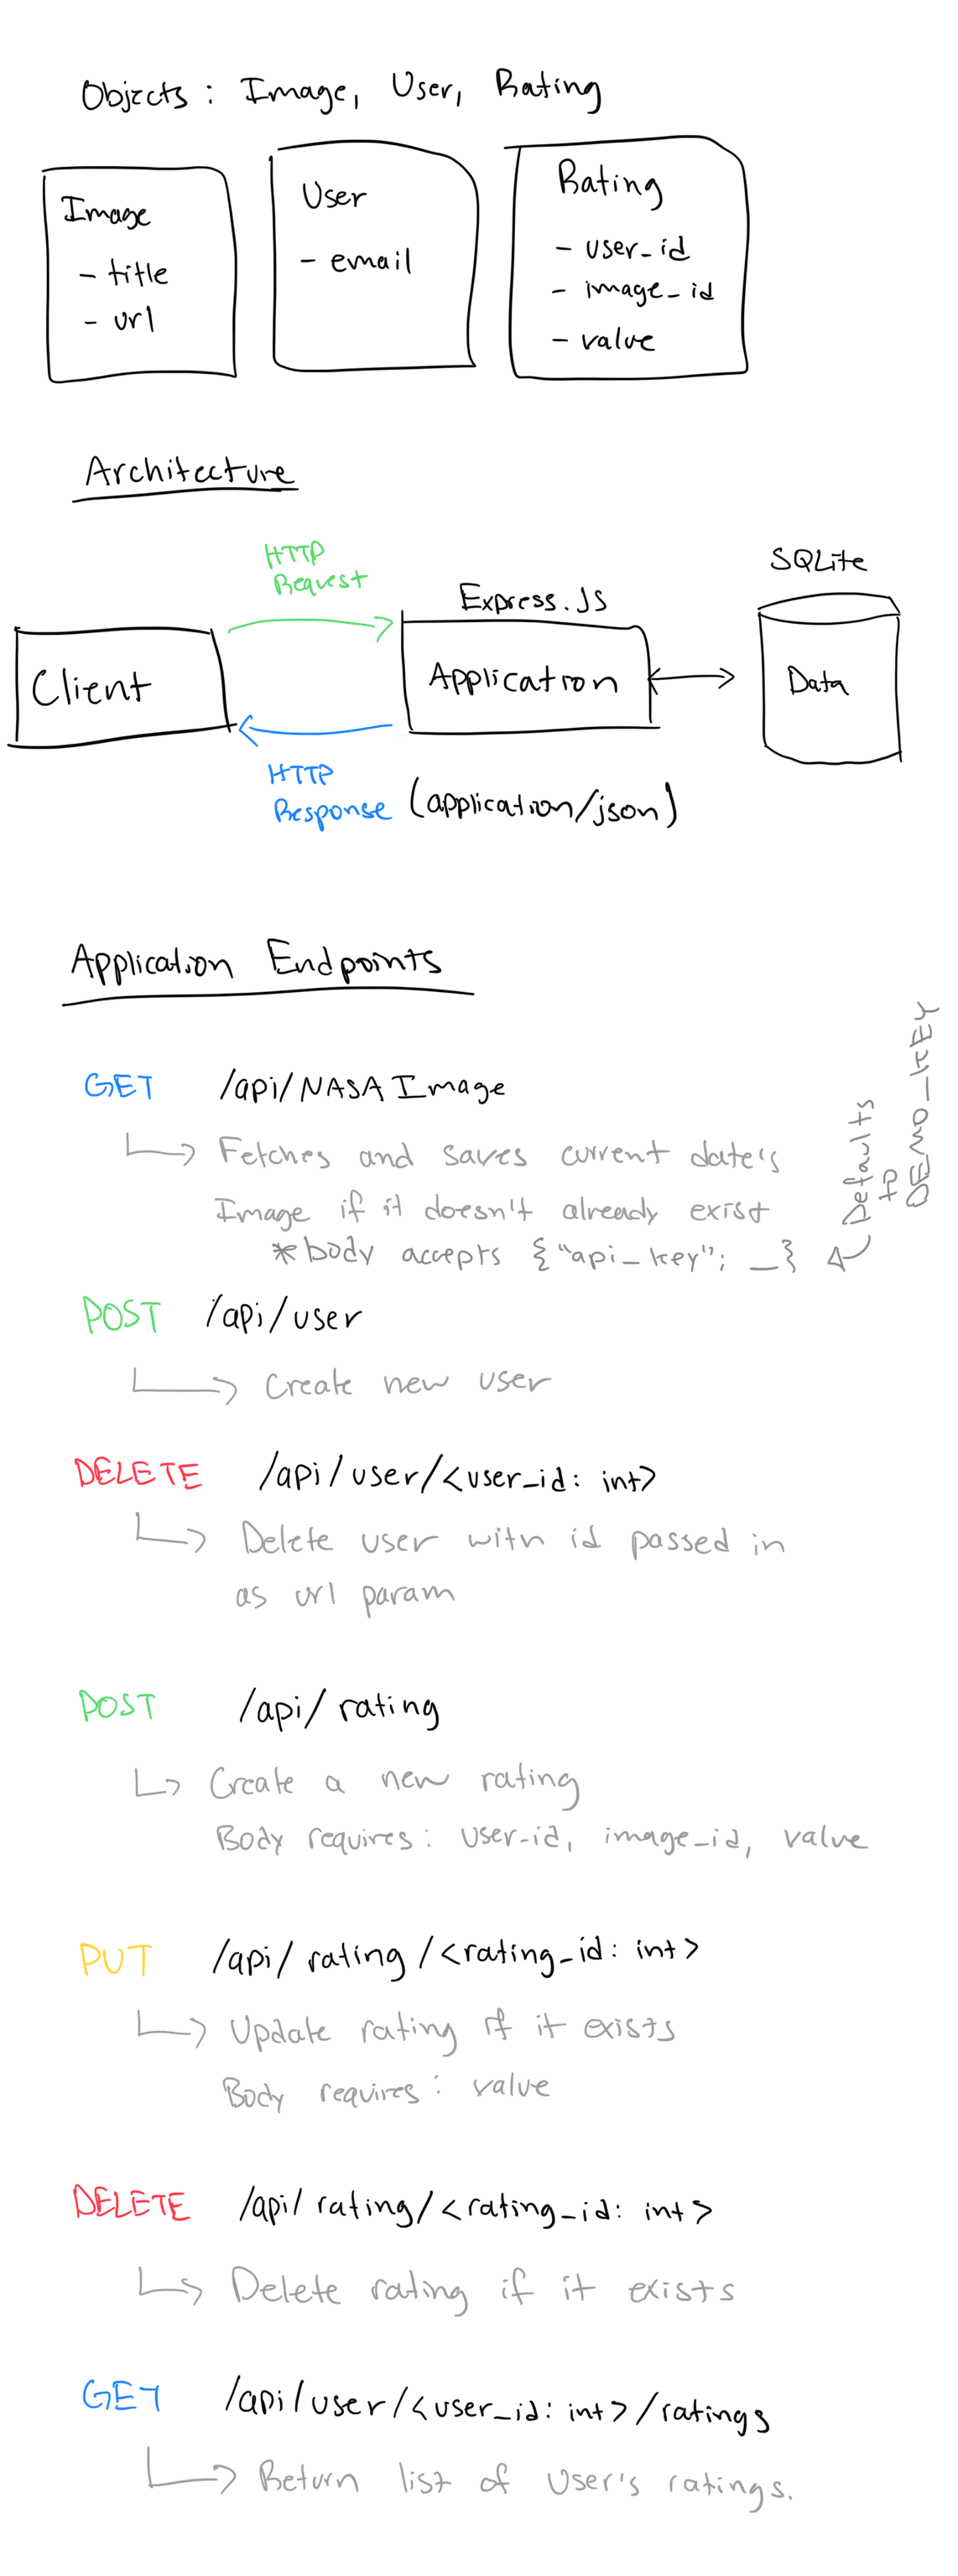 Objects : Image, User, Rating
Image
- title
- url
User
- email
Rating
- user_id
- image_id
- value
Architecture
HTTP
Request
Express.JS
SQLite
Client
Application
Data
HTTP
Response (application/json)
Application Endpoints
GET /api/NASA Image
Fetches and saves current date's
Image if it doesn't already exist
*body accepts {"api_key"; _}
Defaults
to
DEMO_KEY
POST /api/user
Create new user
DELETE /api/user/<user_id: int>
Delete user with id passed in
as url param
POST /api/rating
Create a new rating
Body requires: user_id, image_id, value
PUT /api/rating/<rating_id: int>
Update rating if it exists
Body requires: value
DELETE /api/rating/<rating_id: int>
Delete rating if it exists
GET /api/user/<user_id: int>/ratings
Return list of user's ratings.